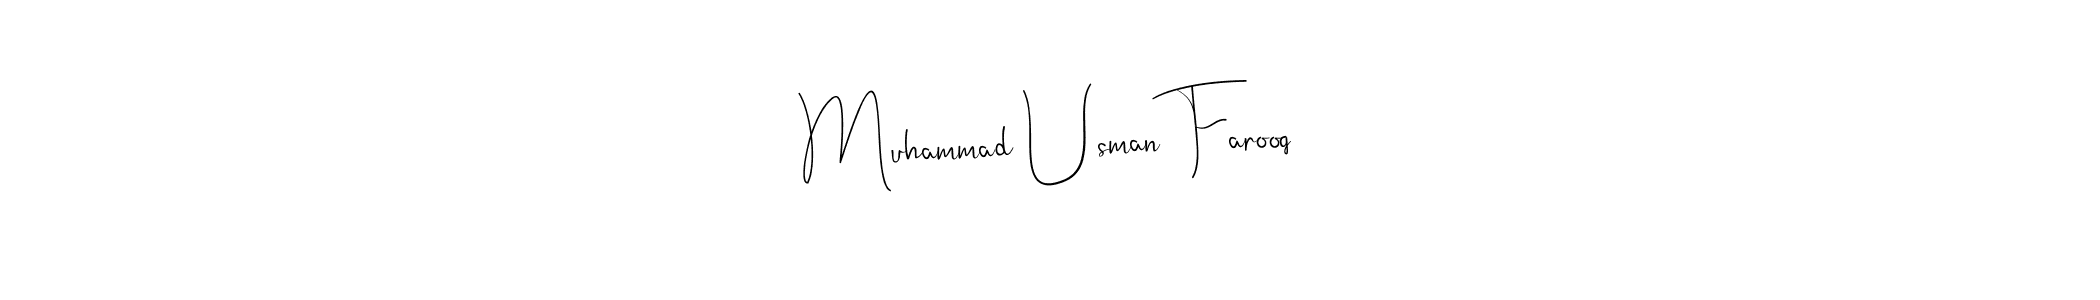 Muhammad Usman Farooq